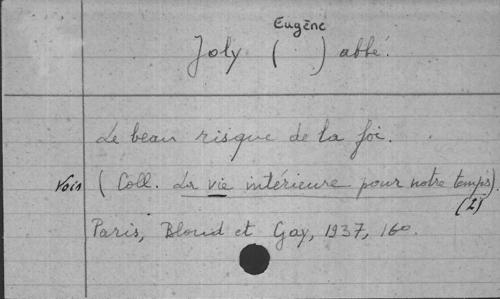 Eugène
Joly ( ) abbé.
Le beau risque de la foi.
Vois ( Coll. La vie intérieure pour notre temps).
(I)
Paris, Bloud et Gay, 1937, 16°.